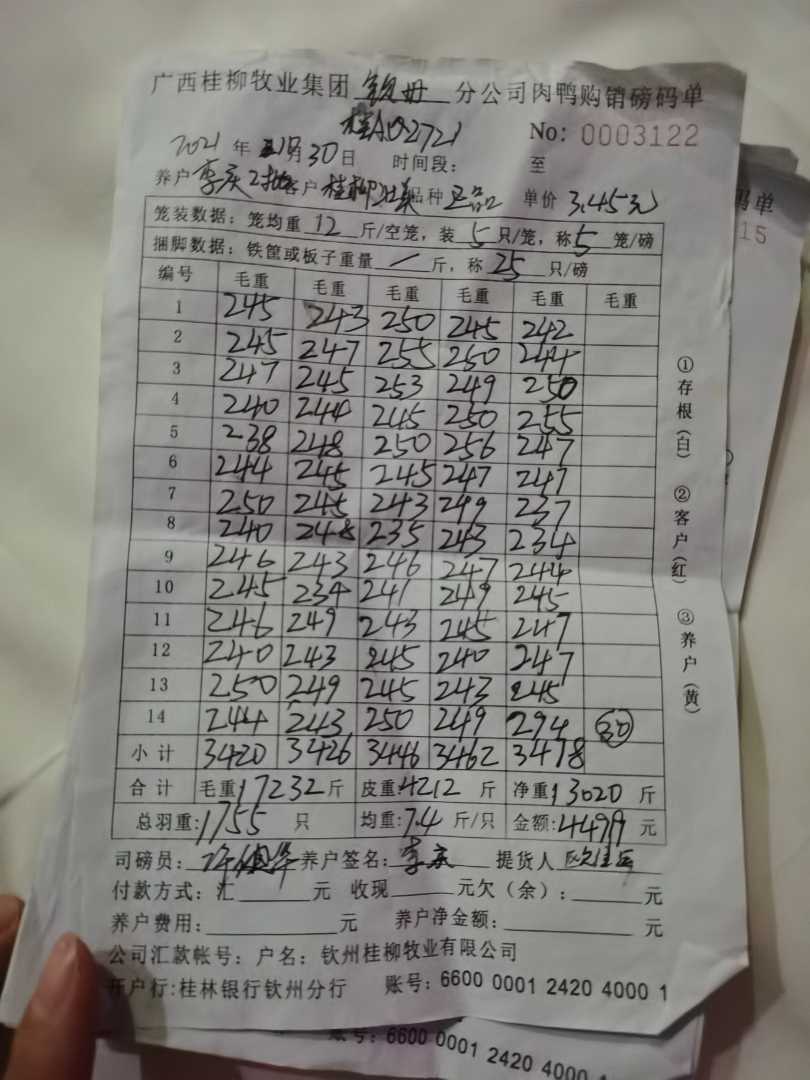 广西桂柳牧业集团 钦州 分公司肉鸭购销磅码单
桂A02721 No: 0003122
2021 年 11月 30日 时间段： 至
养户 李庆2批 客户 桂柳 品种 正品 单价 3.45元
笼装数据：笼均重 12 斤/空笼，装 5 只/笼，称 5 笼/磅
捆脚数据：铁筐或板子重量 / 斤，称 25 只/磅
编号 毛重 毛重 毛重 毛重 毛重 毛重
1 245 243 250 245 242
2 245 247 255 250 244
3 247 245 253 249 250
4 240 244 245 250 255
5 238 248 250 256 247
6 244 245 245 247 247
7 250 245 243 249 237
8 240 248 235 243 234
9 246 243 246 247 244
10 245 234 241 249 245
11 246 249 243 245 247
12 240 243 245 240 247
13 250 249 245 243 245
14 244 243 250 249 294 30
小计 3420 3426 3446 3462 3478
合计 毛重 17232 斤 皮重 4212 斤 净重 13020 斤
总羽重: 1755 只 均重: 7.4 斤/只 金额: 44919 元
司磅员: 养户签名: 李庆 提货人
付款方式：汇 元 收现 元欠（余）： 元
养户费用: 元 养户净金额: 元
公司汇款帐号：户名：钦州桂柳牧业有限公司
开户行:桂林银行钦州分行 账号：6600 0001 2420 4000 1
①存根（白） ②客户（红） ③养户（黄）
码单
15
账号：6600 0001 2420 4000 1